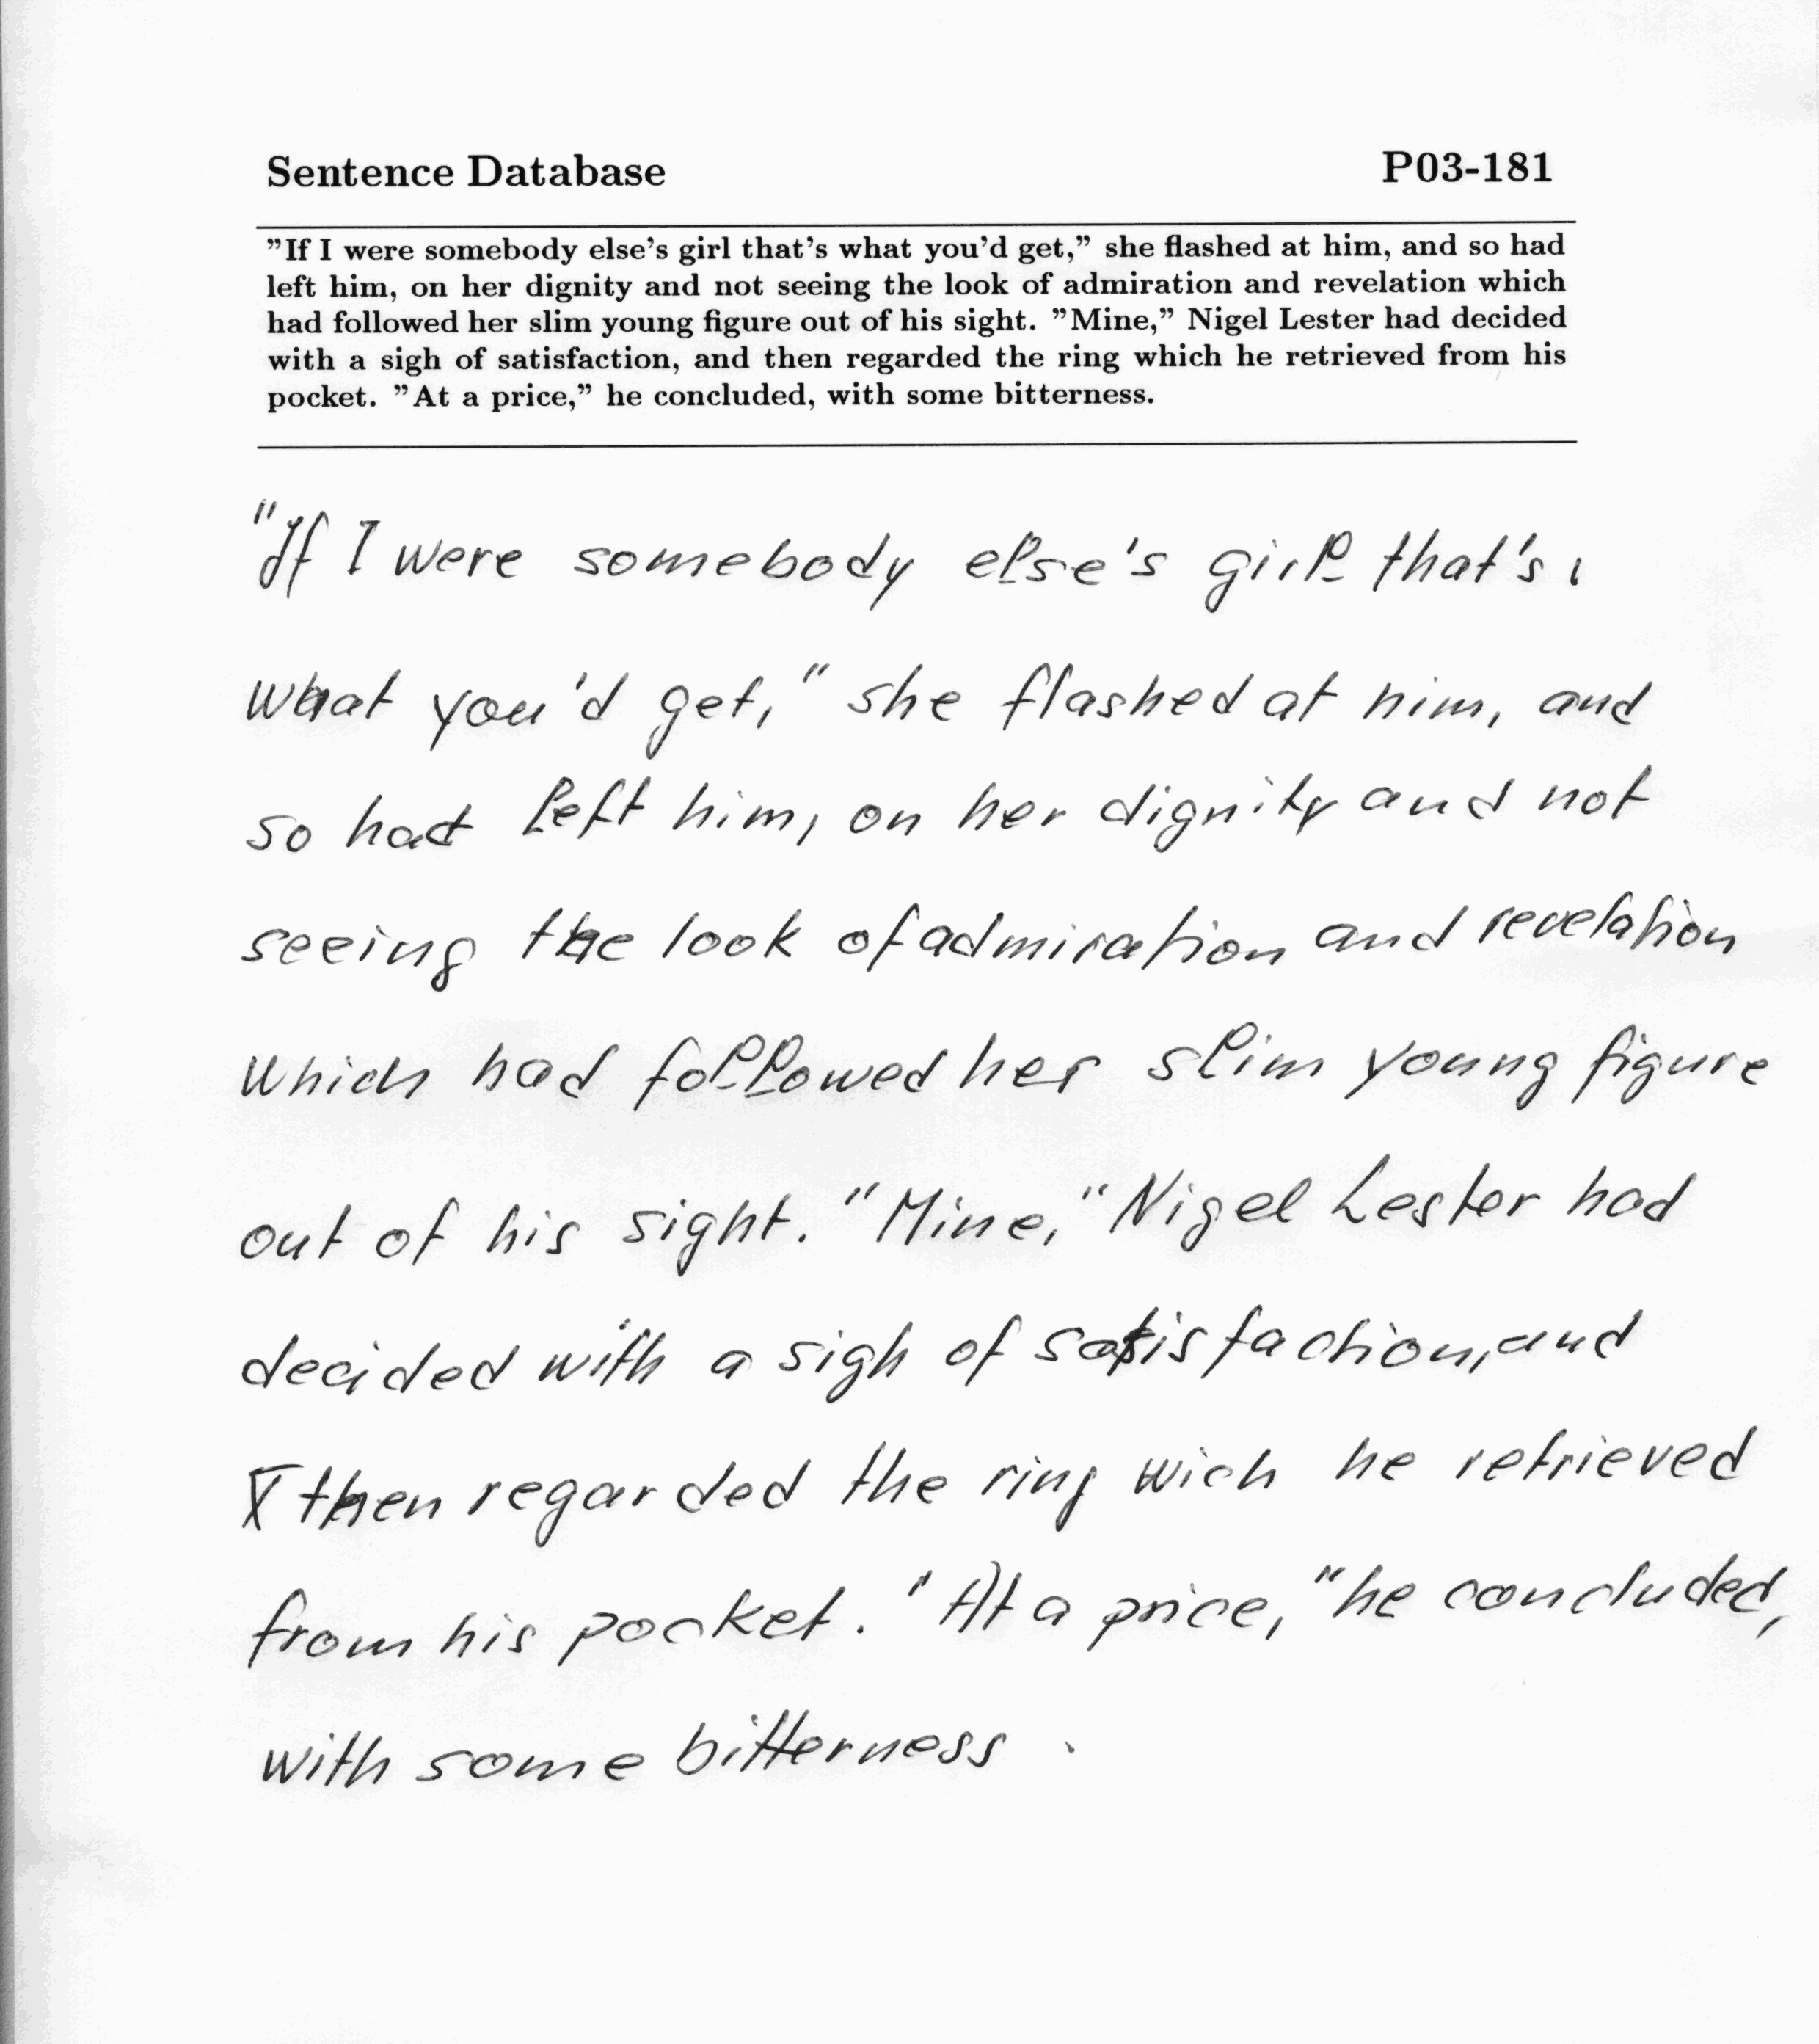 Sentence Database P03-181
"If I were somebody else's girl that's what you'd get," she flashed at him, and so had
left him, on her dignity and not seeing the look of admiration and revelation which
had followed her slim young figure out of his sight. "Mine," Nigel Lester had decided
with a sigh of satisfaction, and then regarded the ring which he retrieved from his
pocket. "At a price," he concluded, with some bitterness.
"If I were somebody else's girl that's
what you'd get," she flashed at him, and
so had left him, on her dignity and not
seeing the look of admiration and revelation
which had followed her slim young figure
out of his sight. "Mine," Nigel Lester had
decided with a sigh of satisfaction, and
then regarded the ring wich he retrieved
from his pocket. "At a price," he concluded,
with some bitterness.